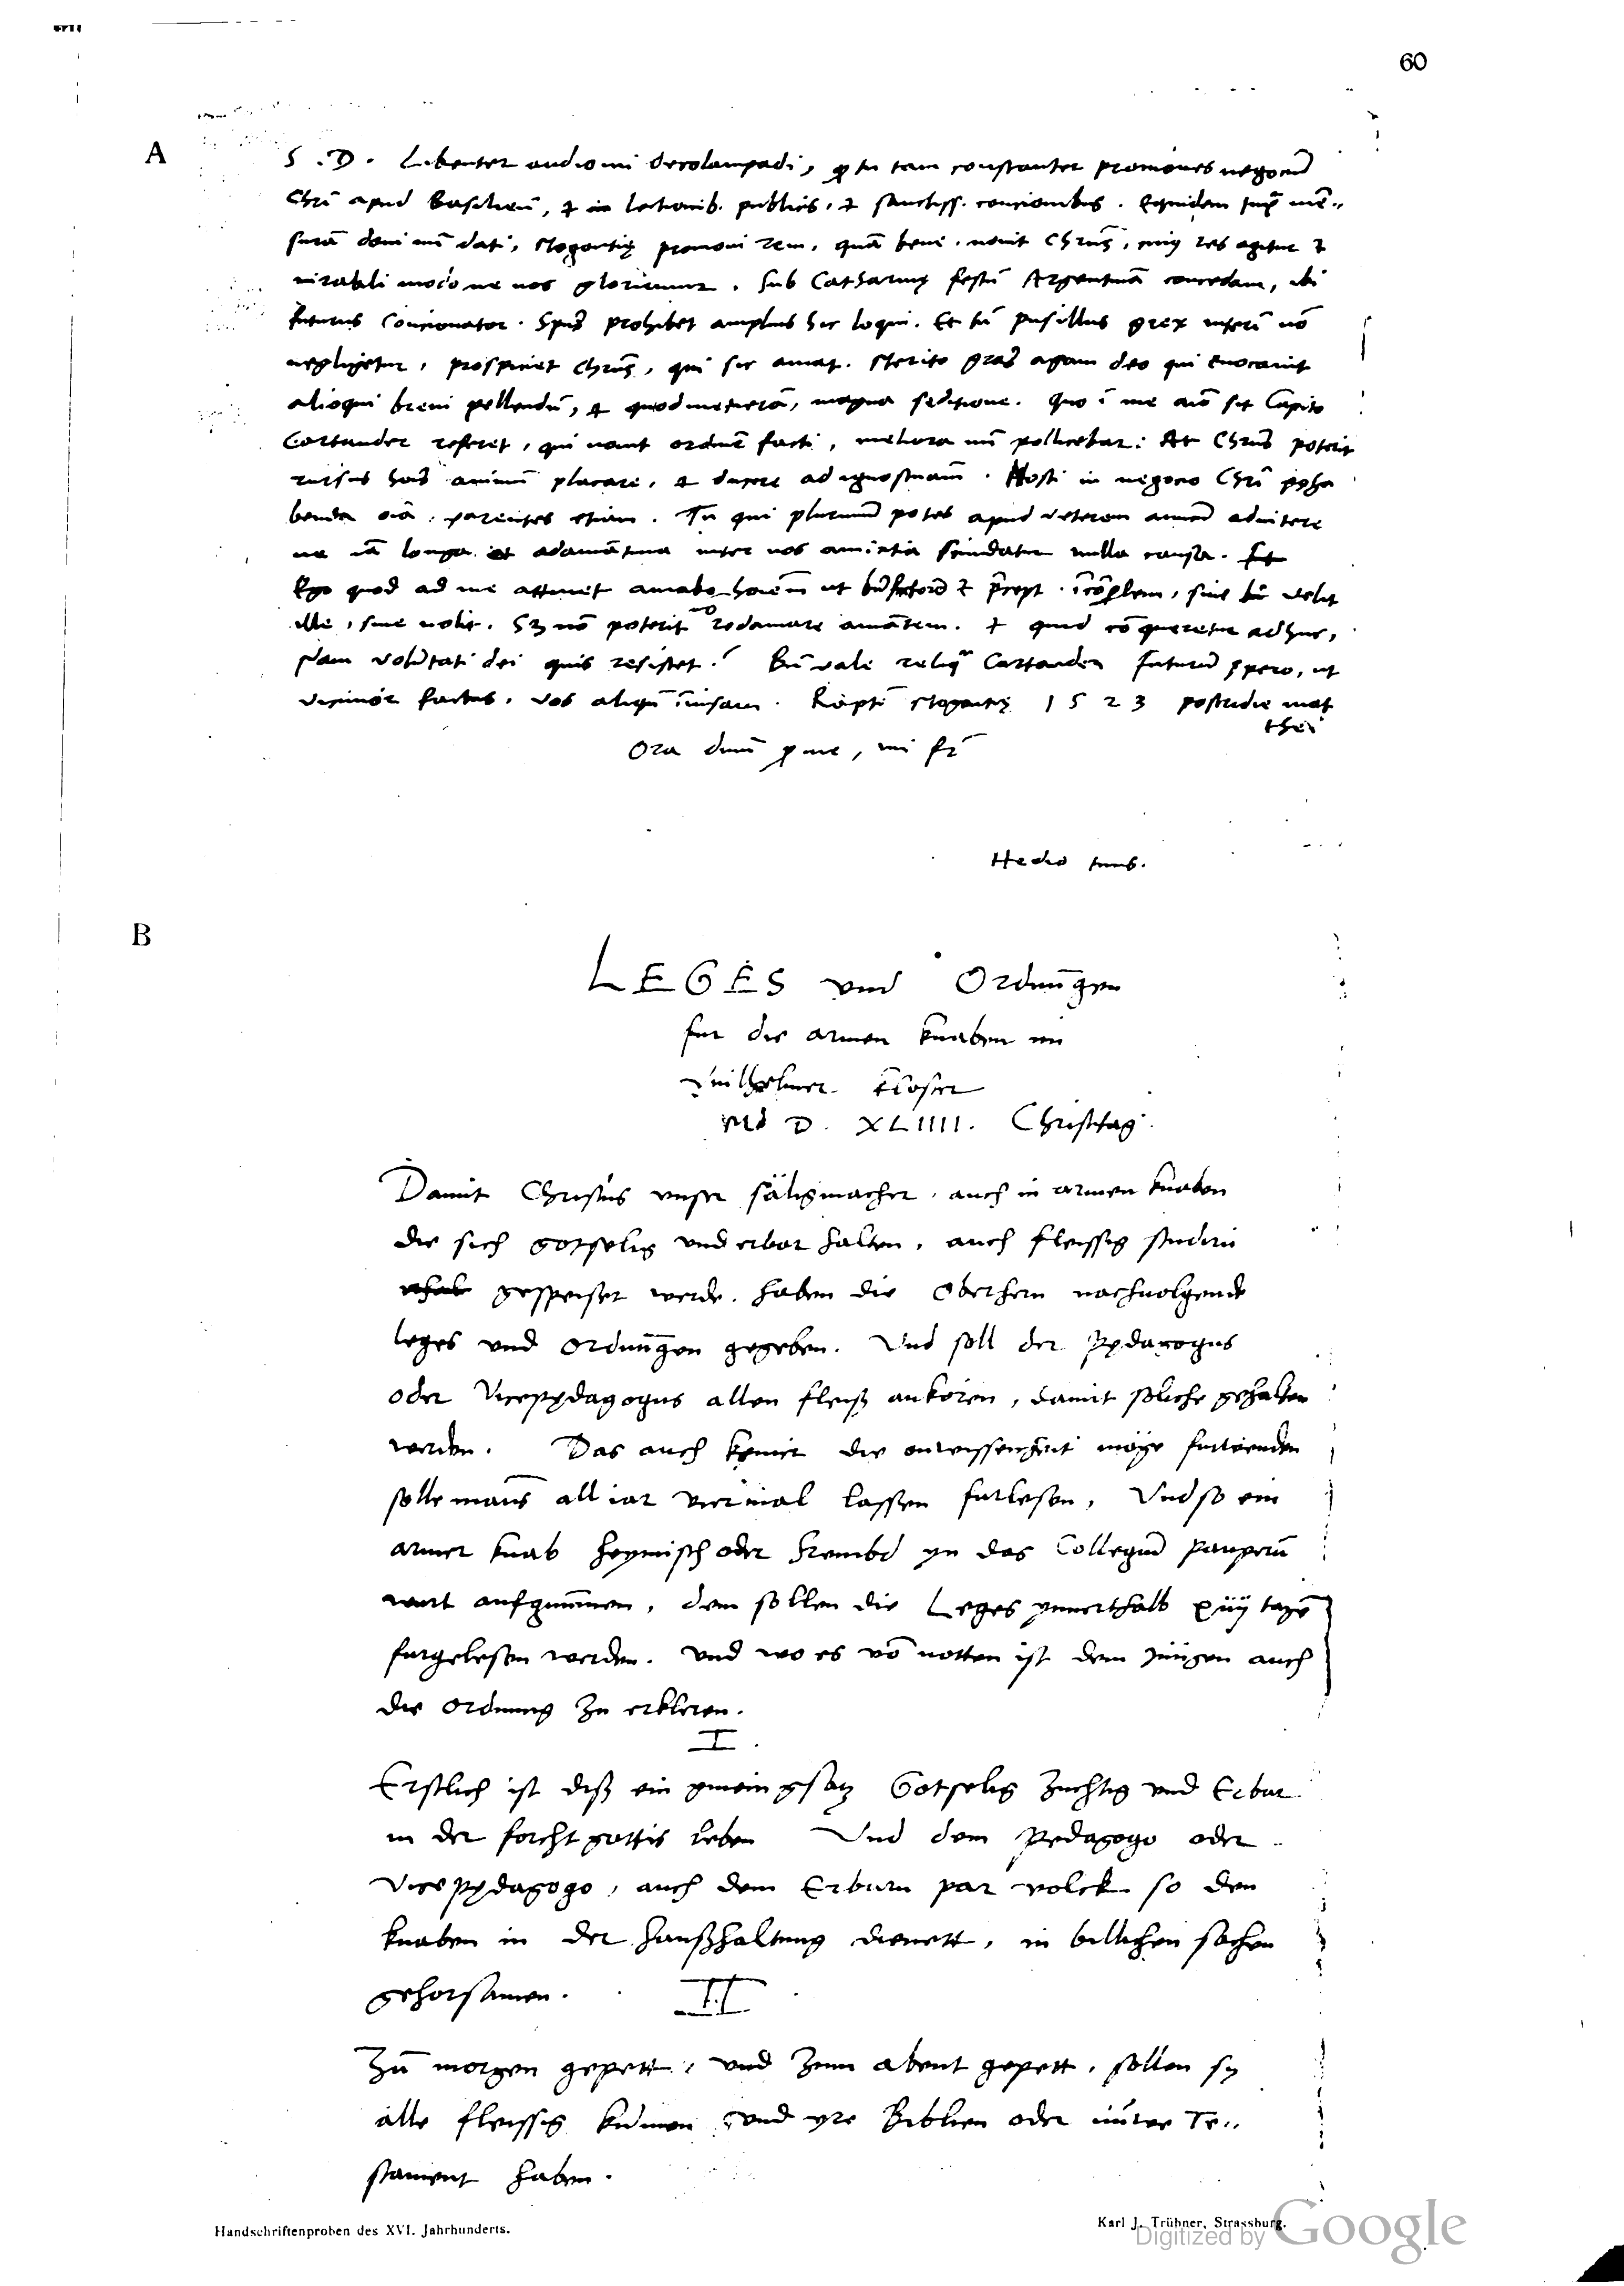 60
A
S. D. Libenter audio mi Oecolampadi, ꝙ tu tam constanter promoves negociū
Chri apud Basileam, & in lectionib. publicis, & sanctiss. concionibus. Equidem iuxta mē„
surā doni mihi dati, Mogontię promovi rem, quā bene, novit Chrūs, cuius res agitur &
mirabili modo ne nos gloriemur. Sub Catharinę festū Argentinā concedam, ibi
futurus concionator. Spūs prohibet amplius hic loqui. Et tn̄ pusillus grex interī nō
negligetur, prospiciet Chrūs, qui sic amat. Merito gras agam deo qui evocavit
alioqui brevi pellendū, & quod metuerā, magna seditione. Quo ī me aīo sit Capito
Cartander referet, qui novit ordinē facti, meliora mihi pollicebar: At Chrūs poterit
rursus hoīs animū placare, & ducere ad ignoscētiam. Nosti in negocio Chri postha
benda oīa, parentes etiam. Tu qui plurimū potes apud veterem amicū adnitere
ne tā longa et adamātina inter nos amicitia scindatur nulla causa.
Ego quod ad me attinet amabo hoīem ut bn̄factorē & p̄cept. , sive velit
ille, sive nolit. Sꝫ nō poterit nō redamare amātem. & quid cōqueretur adhuc,
Nam volūtati dei quis resistet? Bn̄ vale reliqua Cartander futurū spero, ut
vicinior factus, vos aliqn̄ invisam. Raptī Mogontię 1523 postridie mat
thei
Ora dn̄m ꝓ me, mi fr̄
Hedio tuus.
B
LEGES und Ordnūngen
fur die armen knaben im
Wilhelmer kloster
M D. XLIIII. Christtag.
Damit Christus unser säligmacher, auch in armen knaben
die sich gotselig und erbar halten, auch fleissig studirn
gespeiset werde, haben die Oberhern nachvolgende
leges und Ordnūngen gegeben. Und soll der Pędagogus
oder Vicepędagogus allen fleiß ankören, damit soliche gehalten
werden. Das auch keiner die onwissenheit möge furwenden
solle mans all iar viermal lassen furlesen, Und so ein
armer knab heymisch oder frembd yn das Collegiū pauperū
wurt aufgnūmmen, dem sollen die Leges ynnerthalb xiiij tagē
furgelesen werden. und wo es vō notten ist dem jungen auch
die Ordnung zu erkleren.
I.
Erstlich ist diß ein gmein gsatz Gotselig zuchtig und Erbar
in der forcht gottis leben Und dem Pedagogo oder
Vicepędagogo, auch dem Erburn par volck so den
knaben in der haußhaltung dienett, in billichen sachen
gehorsamen.
II
Zū morgen gepett, und zum abent gepett, sollen sy
alle fleissig kūmen und yre Biblien oder nüwe Te„
stament haben.
Handschriftenproben des XVI. Jahrhunderts.
Karl J. Trübner, Strassburg.
Digitized by Google